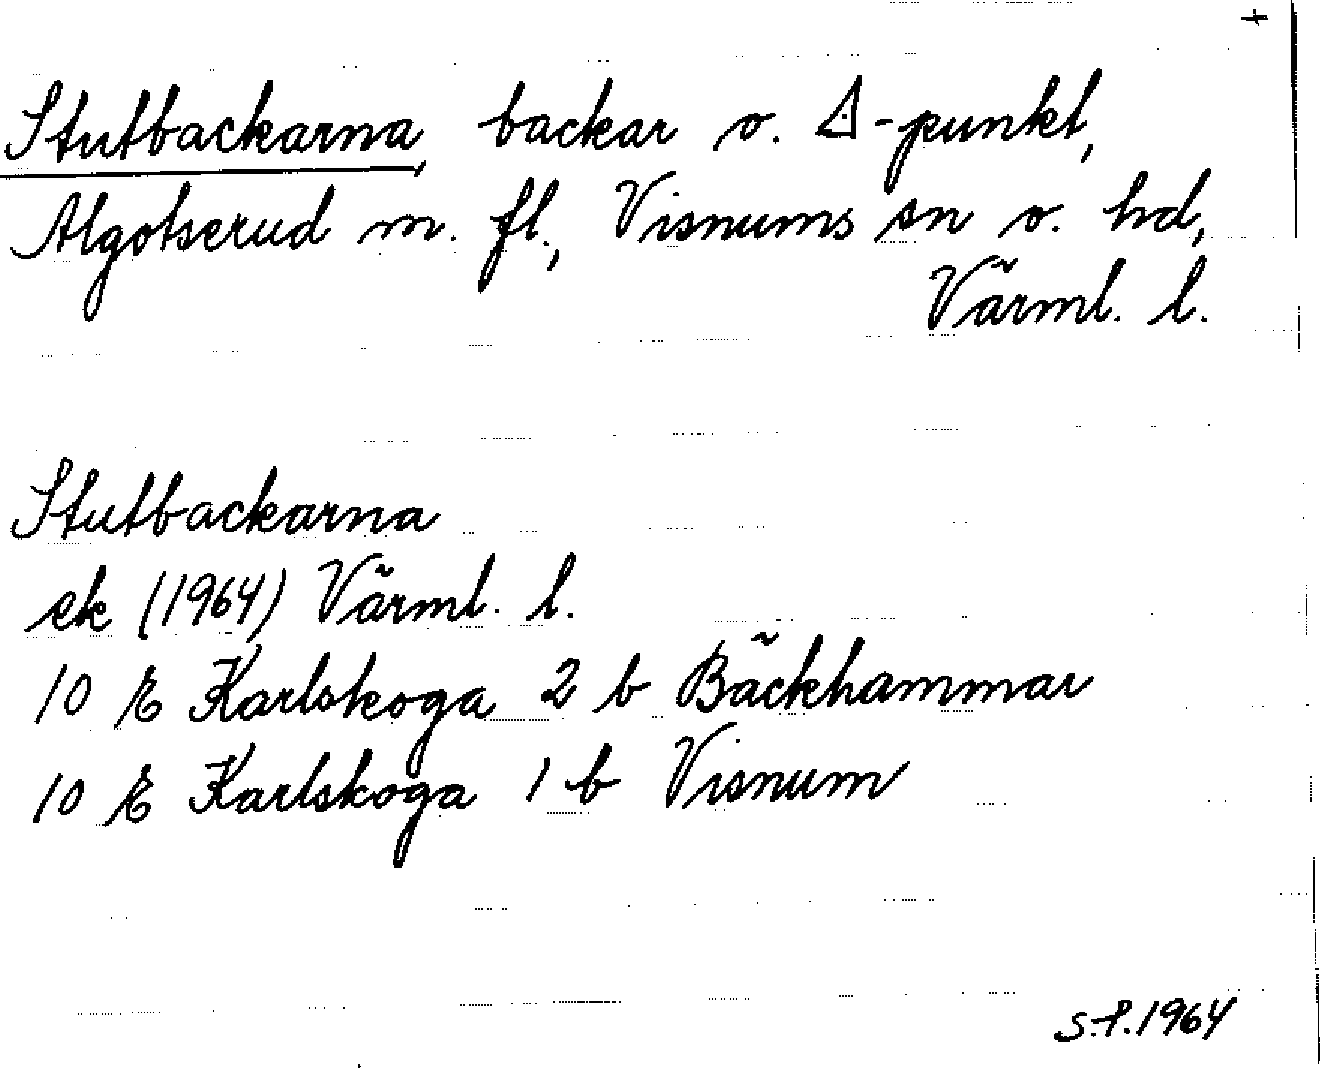 +
Stutbackarna, backar o. Δ-punkt,
Algotserud m. fl., Visnums sn o. hd,
Värml. l.
Stutbackarna
ek (1964) Värml. l.
10 E Karlskoga 2 b Bäckhammar
10 E Karlskoga 1 b Visnum
S.P. 1964